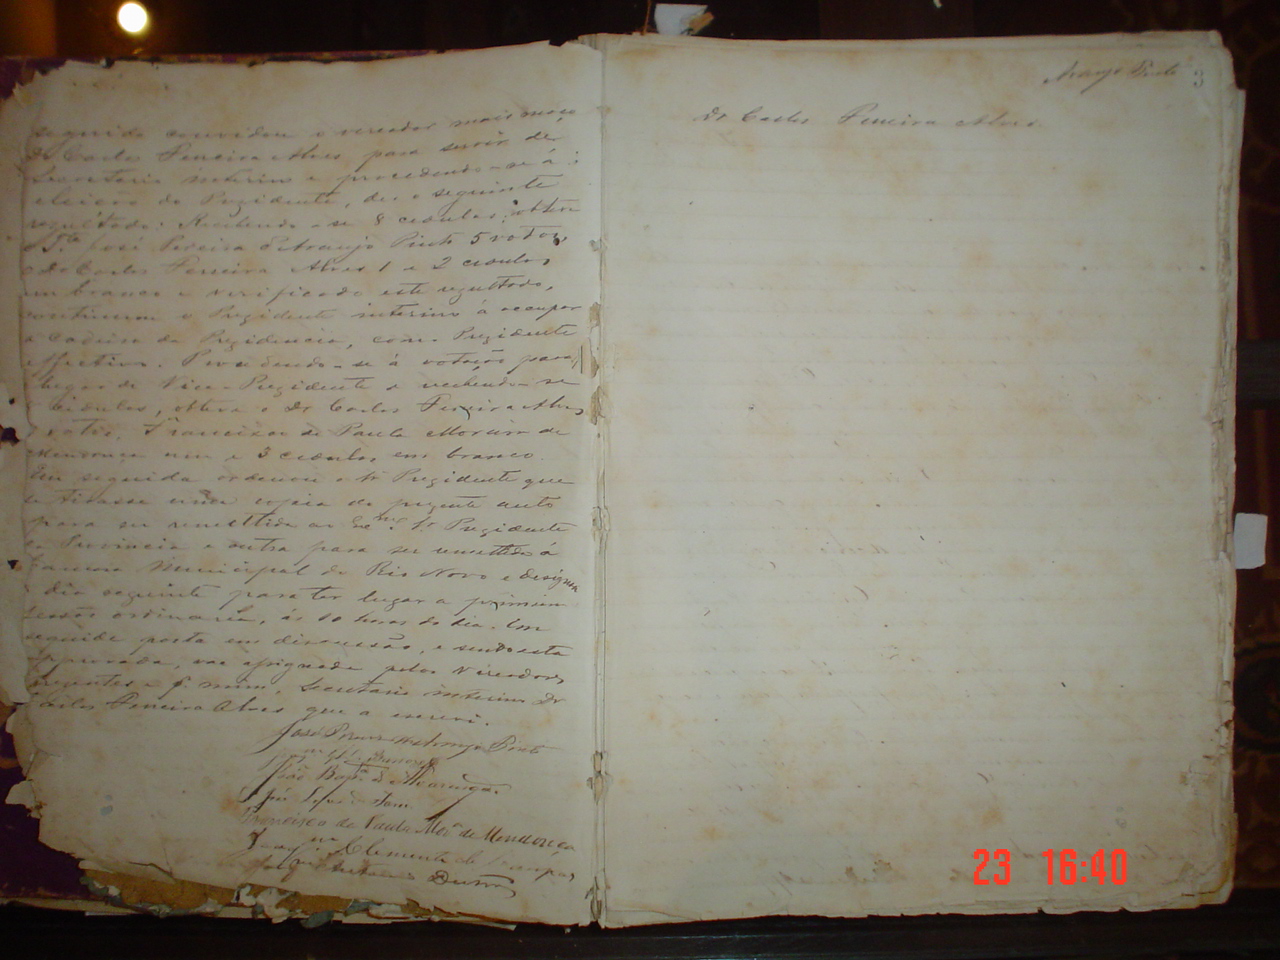 seguida convidou o vereador mais moço
Dr Carlos Ferreira Alves para servir de
Secretario interino e procedendo-se á
eleição do Prezidente, deu o seguinte
rezultado: Recebendo-se 8 cedulas, obteve
José Pereira d'Araujo Pinto 5 votos,
o Dr Carlos Ferreira Alves 1 e 2 cedulas
em branco e verificado este rezultado,
continuou o Prezidente interino á occupar
a cadeira da Prezidencia, como Prezidente
effectivo. Procedendo-se á votação para
lugar de Vice-Prezidente e recebendo-se
cedulas, obteve o Dr Carlos Ferreira Alves
votos, Francisco de Paula Moreira de
Mendonça um e 3 cedulas em branco.
Em seguida ordenou o Sr Prezidente que
se tirasse uma copia do prezente auto
para ser remettida ao Exmo. Sr Prezidente
da Provincia e outra para ser remettida á
Camara Municipal do Rio Novo e designou
o dia seguinte para ter lugar a primeira
sessão ordinaria, ás 10 horas do dia. Em
seguida posta em discussão, e sendo esta
approvada, vae assignada pelos Vereadores
prezentes e p. mim, Secretario interino Dr
Carlos Ferreira Alves que a escrevi.
José Pereira d'Araujo Pinto
João Bapta. de Alvarenga
Francisco de Paula Mora. de Mendonça
Joaqm. Clemente de Campos
Antonio Dutra
Araujo Pinto 3
Dr Carlos Ferreira Alves
23 16:40